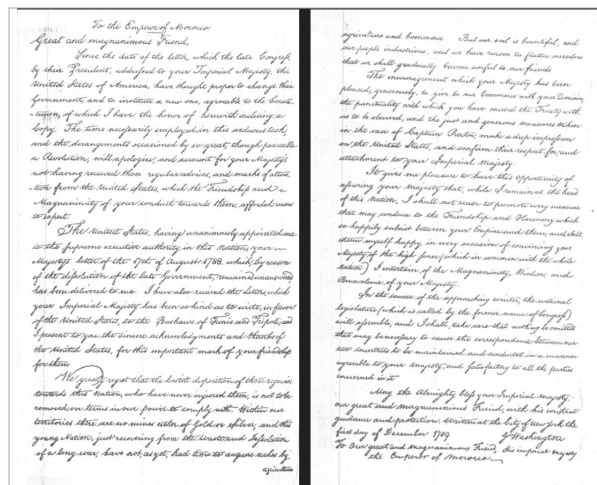 To the Emperor of Morocco
Great and magnanimous Friend,
Since the date of the letter, which the late Congress,
by their President, addressed to your Imperial Majesty, the
United States of America, have thought proper to change their
Government, and to institute a new one, agreeable to the Consti-
tution, of which I have the honor of herewith enclosing a
Copy. The time necessarily employed in this arduous task,
and the derangements occasioned by so great, though peaceable
a Revolution, will apologize, and account for your Majesty's
not having received those regular advices, and marks of atten-
tion from the United States, which the Friendship and
Magnanimity of your conduct towards them, afforded reason
to expect.
The United States, having unanimously appointed me
to the supreme executive authority in this Nation, your
Majesty's letter of the 17th of August 1788, which, by reason
of the dissolution of the late Government, remained unanswered,
has been delivered to me. I have also received the letters, which
your Imperial Majesty has been so kind as to write, in favor
of the United States, to the Bashaws of Tunis and Tripoli, and
I present to you the sincere acknowledgments and thanks of
the United States, for this important mark of your friendship
for them.
We greatly regret that the hostile disposition of those regencies
towards this Nation, who have never injured them, is not to be
removed, on terms in our power to comply with. Within our
territories there are no mines either of Gold or Silver, and this
young Nation, just recovering from the waste and desolation
of a long war, have not, as yet, had time to acquire riches by
agriculture
agriculture and commerce. But our soil is bountiful, and
our people industrious, and we have reason to flatter ourselves
that we shall gradually become useful to our friends.
The encouragement which your Majesty has been
pleased, generously, to give to our Commerce with your Dominions,
the punctuality with which you have caused the Treaty with
us to be observed, and the just and generous measures taken
in the case of Captain Proctor, make a deep impression
on the United States, and confirm their respect for, and
attachment to your Imperial Majesty.
It gives me pleasure to have this opportunity of
assuring your Majesty that, while I remain at the head
of this Nation, I shall not cease to promote every measure
that may conduce to the Friendship and Harmony which
so happily subsist between your Empire and them, and shall
esteem myself happy in every occasion of convincing your
Majesty of the high sense (which in common with the whole
nation) I entertain of the Magnanimity, Wisdom and
Benevolence of your Majesty.
In the course of the approaching winter, the national
legislature (which is called by the former name of Congress)
will assemble, and I shall take care that nothing be omitted
that may be necessary to cause the correspondence between our
two countries to be maintained and conducted in a manner
agreeable to your Majesty, and satisfactory to all the parties
concerned in it.
May the Almighty bless your Imperial Majesty,
our great and magnanimous Friend, with his constant
guidance and protection. Written at the City of New York the
first day of December 1789
G Washington
To Our great and magnanimous Friend, His imperial Majesty
the Emperor of Morocco.